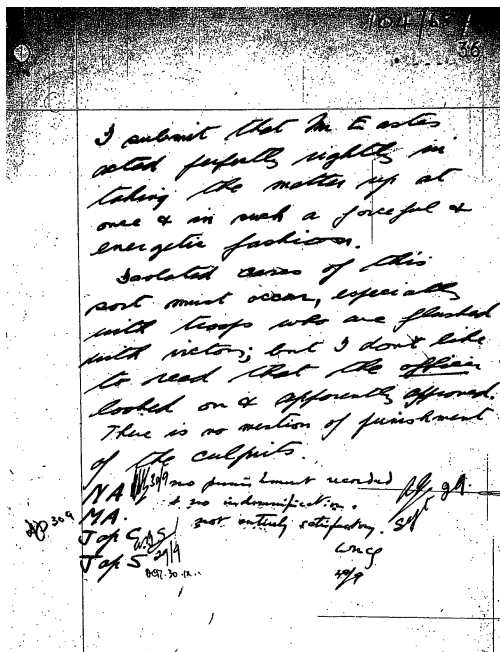 36
I submit that Mr. Eastes
acted perfectly rightly in
taking the matter up at
once & in such a forceful &
energetic fashion.
Isolated cases of this
sort must occur, especially
with troops who are flushed
with victory; but I don't like
to read that the officer
looked on & apparently approved.
There is no mention of punishment
of the culprits.
NA 30/9 no punishment recorded
& no indemnification.
MA. not entirely satisfactory.
29. Sept
30 9
Jap C
Jap S 29/9
30.ix.
29/9